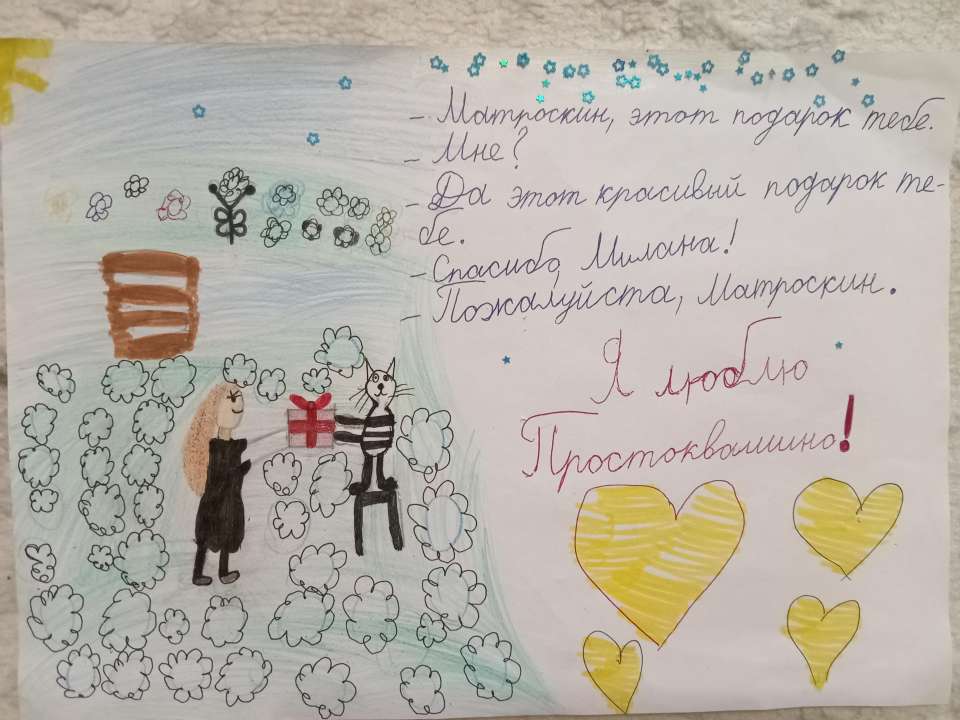 – Матроскин, этот подарок тебе.
– Мне?
– Да этот красивый подарок те-
бе.
– Спасибо, Милана!
– Пожалуйста, Матроскин.
Я люблю
Простоквашино!